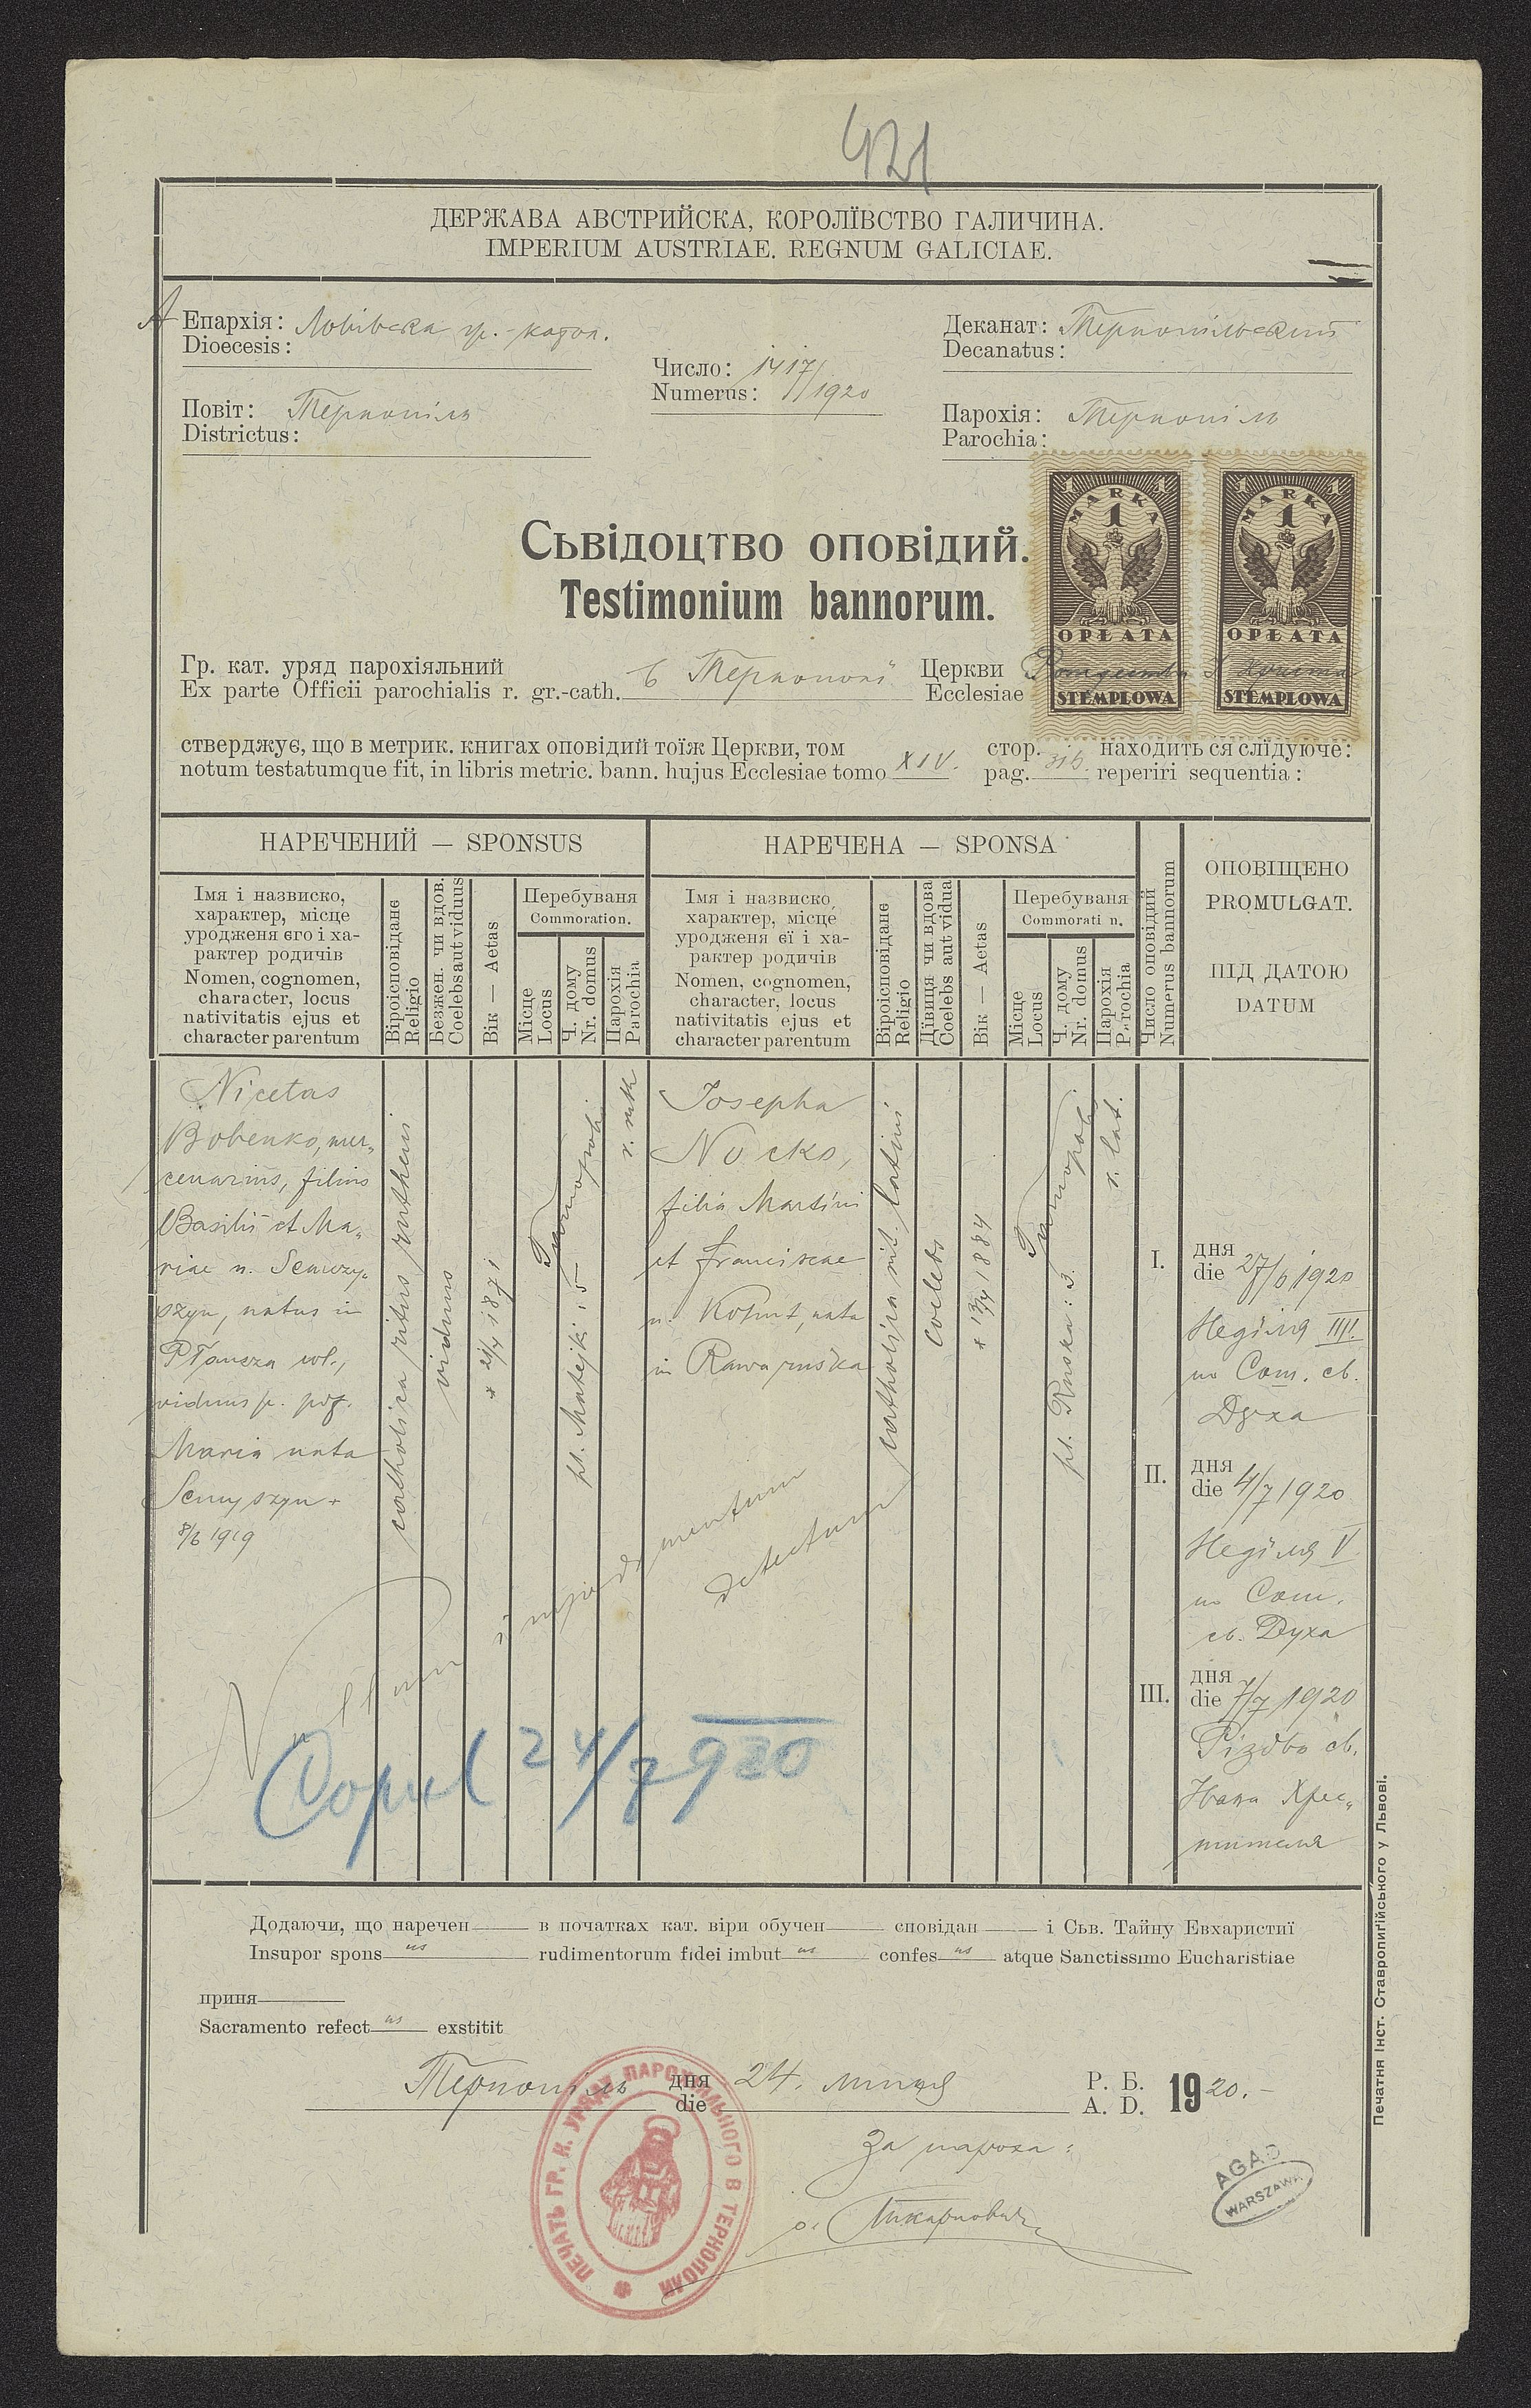 421
ДЕРЖАВА АВСТРИЙСКА, КОРОЛЇВСТВО ГАЛИЧИНА.
IMPERIUM AUSTRIAE. REGNUM GALICIAE.
Епархія: Львівска гр.-катол.
Dioecesis:
Деканат: Тернопільский
Decanatus:
Число: 1417/1920
Numerus:
Повіт: Тернопіль
Districtus:
Парохія: Тернопіль
Parochia:
1 MARKA 1
1
OPŁATA
STEMPLOWA
1 MARKA 1
1
OPŁATA
STEMPLOWA
Сьвідоцтво оповідий.
Testimonium bannorum.
Гр. кат. уряд парохіяльний в Тернополї Церкви
Ex parte Officii parochialis r. gr.-cath. Ecclesiae
стверджує, що в метрик. книгах оповідий тоїж Церкви, том XIV. стор. находить ся слїдуюче:
notum testatumque fit, in libris metric. bann. hujus Ecclesiae tomo pag. 316. reperiri sequentia:
НАРЕЧЕНИЙ — SPONSUS
НАРЕЧЕНА — SPONSA
Імя і назвиско,
характер, місце
уродженя єго і ха-
рактер родичів
Nomen, cognomen,
character, locus
nativitatis ejus et
character parentum
Віроісповіданє
Religio
Безжен. чи вдов.
Coelebs aut viduus
Вік — Aetas
Перебуваня
Commoration.
Місце
Locus
Ч. дому
Nr. domus
Парохія
Parochia
Імя і назвиско,
характер, місце
уродженя єї і ха-
рактер родичів
Nomen, cognomen,
character, locus
nativitatis ejus et
character parentum
Віроісповіданє
Religio
Дївиця чи вдова
Coelebs aut vidua
Вік — Aetas
Перебуваня
Commorati n.
Місце
Locus
Ч. дому
Nr. domus
Парохія
Parochia
Число оповідий
Numerus bannorum
ОПОВІЩЕНО
PROMULGAT.
ПІД ДАТОЮ
DATUM
Nicetas
Bobenko, mer„
cenarius, filius
Basilii et Ma„
riae n. Semczy„
szyn, natus in
vol.,
viduus p.
Maria nata
Semyszyn +
8/6 1919
catholica ritus rutheni
viduus
* 21/4 1871
Tarnopoli
pl. Matejki : 5
r. ruth
Josepha
Nocko,
filia Martini
et Franciscae
n. Koput, nata
in Rawa ruska
catholica rit. latini
coelebs
* 13/4 1884
Tarnopoli
pl. Ruska : 3.
r. lat.
Nullum impedimentum
detectum
I. дня
die 27/6 1920
Неділя IIII.
по Сош. св.
Духа
II. дня
die 4/7 1920
Неділя V
по Сош.
св. Духа
III. дня
die 7/7 1920
Різдво св.
Івана Хрес„
тителя
Copul 24/7 920
Додаючи, що наречен в початках кат. віри обучен сповідан і Сьв. Тайну Евхаристиї
Insupor spons us rudimentorum fidei imbut us confes us atque Sanctissimo Eucharistiae
приня
Sacramento refect us exstitit
Тернопіль дня 24. липня Р. Б.
die A. D. 1920.-
За пароха:
ПЕЧАТЬ ГР. К. УРЯДУ ПАРОХІЯЛЬНОГО В ТЕРНОПОЛИ
AGAD
WARSZAWA
Печатня Інст. Ставропигійського у Львові.